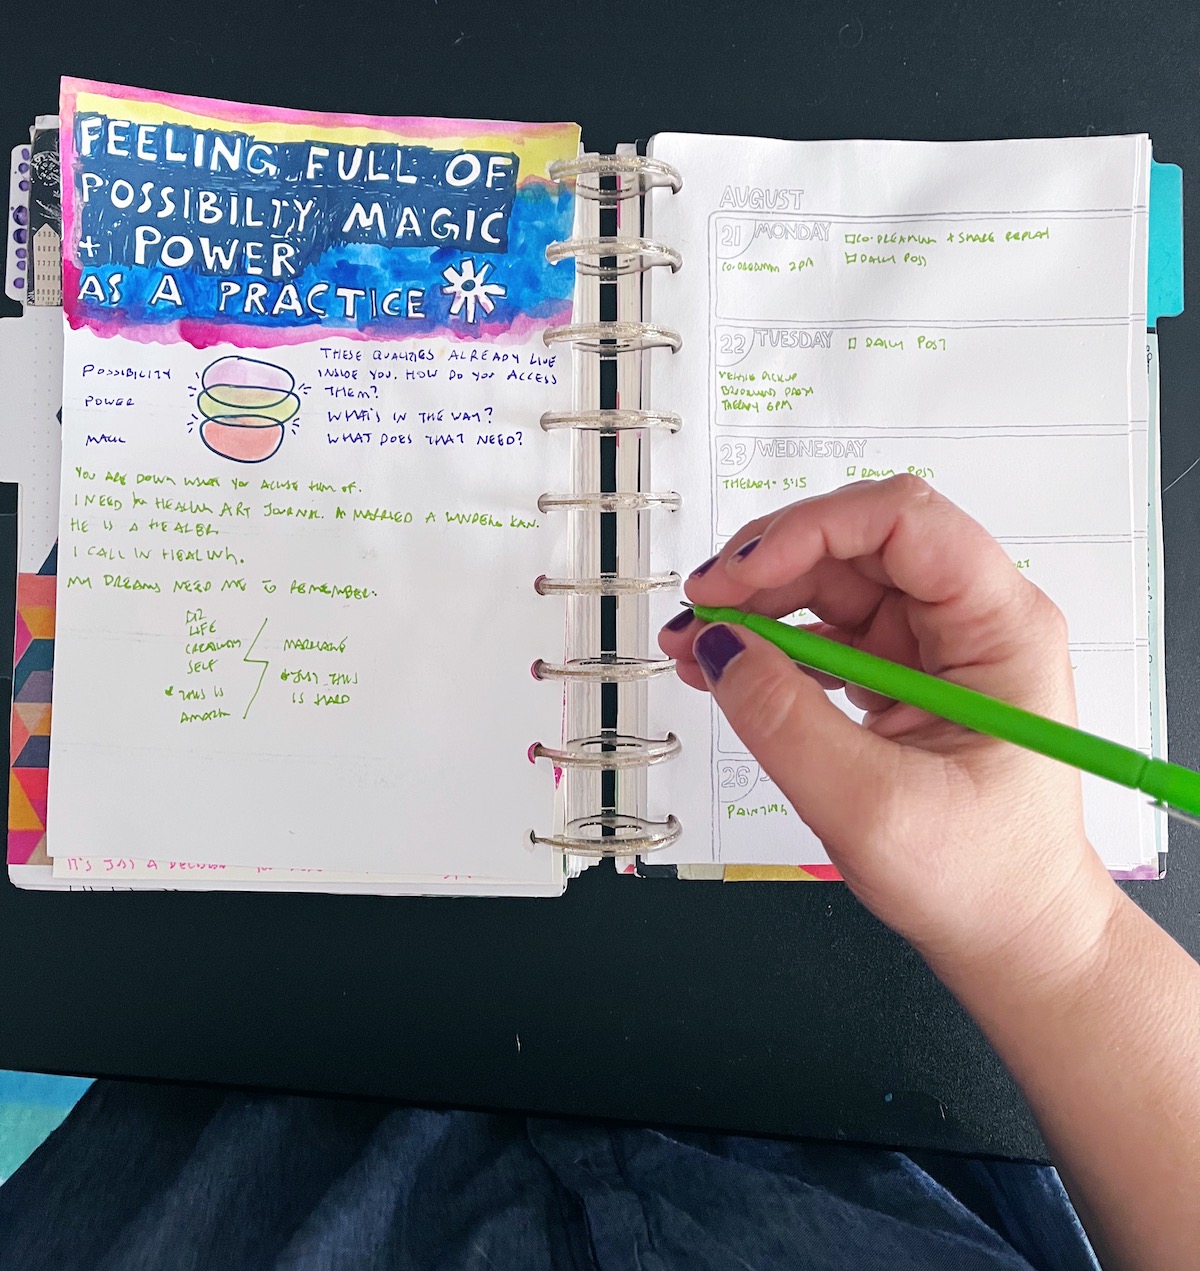 FEELING FULL OF
POSSIBILTY MAGIC
+ POWER
AS A PRACTICE
POSSIBILITY
POWER
MAGIC
THESE QUALITIES ALREADY LIVE
INSIDE YOU. HOW DO YOU ACCESS
THEM?
WHAT'S IN THE WAY?
WHAT DOES THAT NEED?
YOU ARE DOWN YOU OF.
I NEED HEALING ART JOURNAL. MARRIED A
HE IS A HEALER.
I CALL IN HEALING.
MY DREAMS NEED ME TO REMEMBER.
LIFE
CREATIVITY
SELF
* THIS IS
* JUST THIS
IS HARD
IT'S JUST A DECISION
AUGUST
21 MONDAY
☐ CO-DREAMING + SHARE REPLAY
☐ DAILY POST
CO-DREAMING 2PM
22 TUESDAY
☐ DAILY POST
PICKUP
THERAPY 6PM
23 WEDNESDAY
☐ DAILY POST
THERAPY - 3:15
26
PAINTING